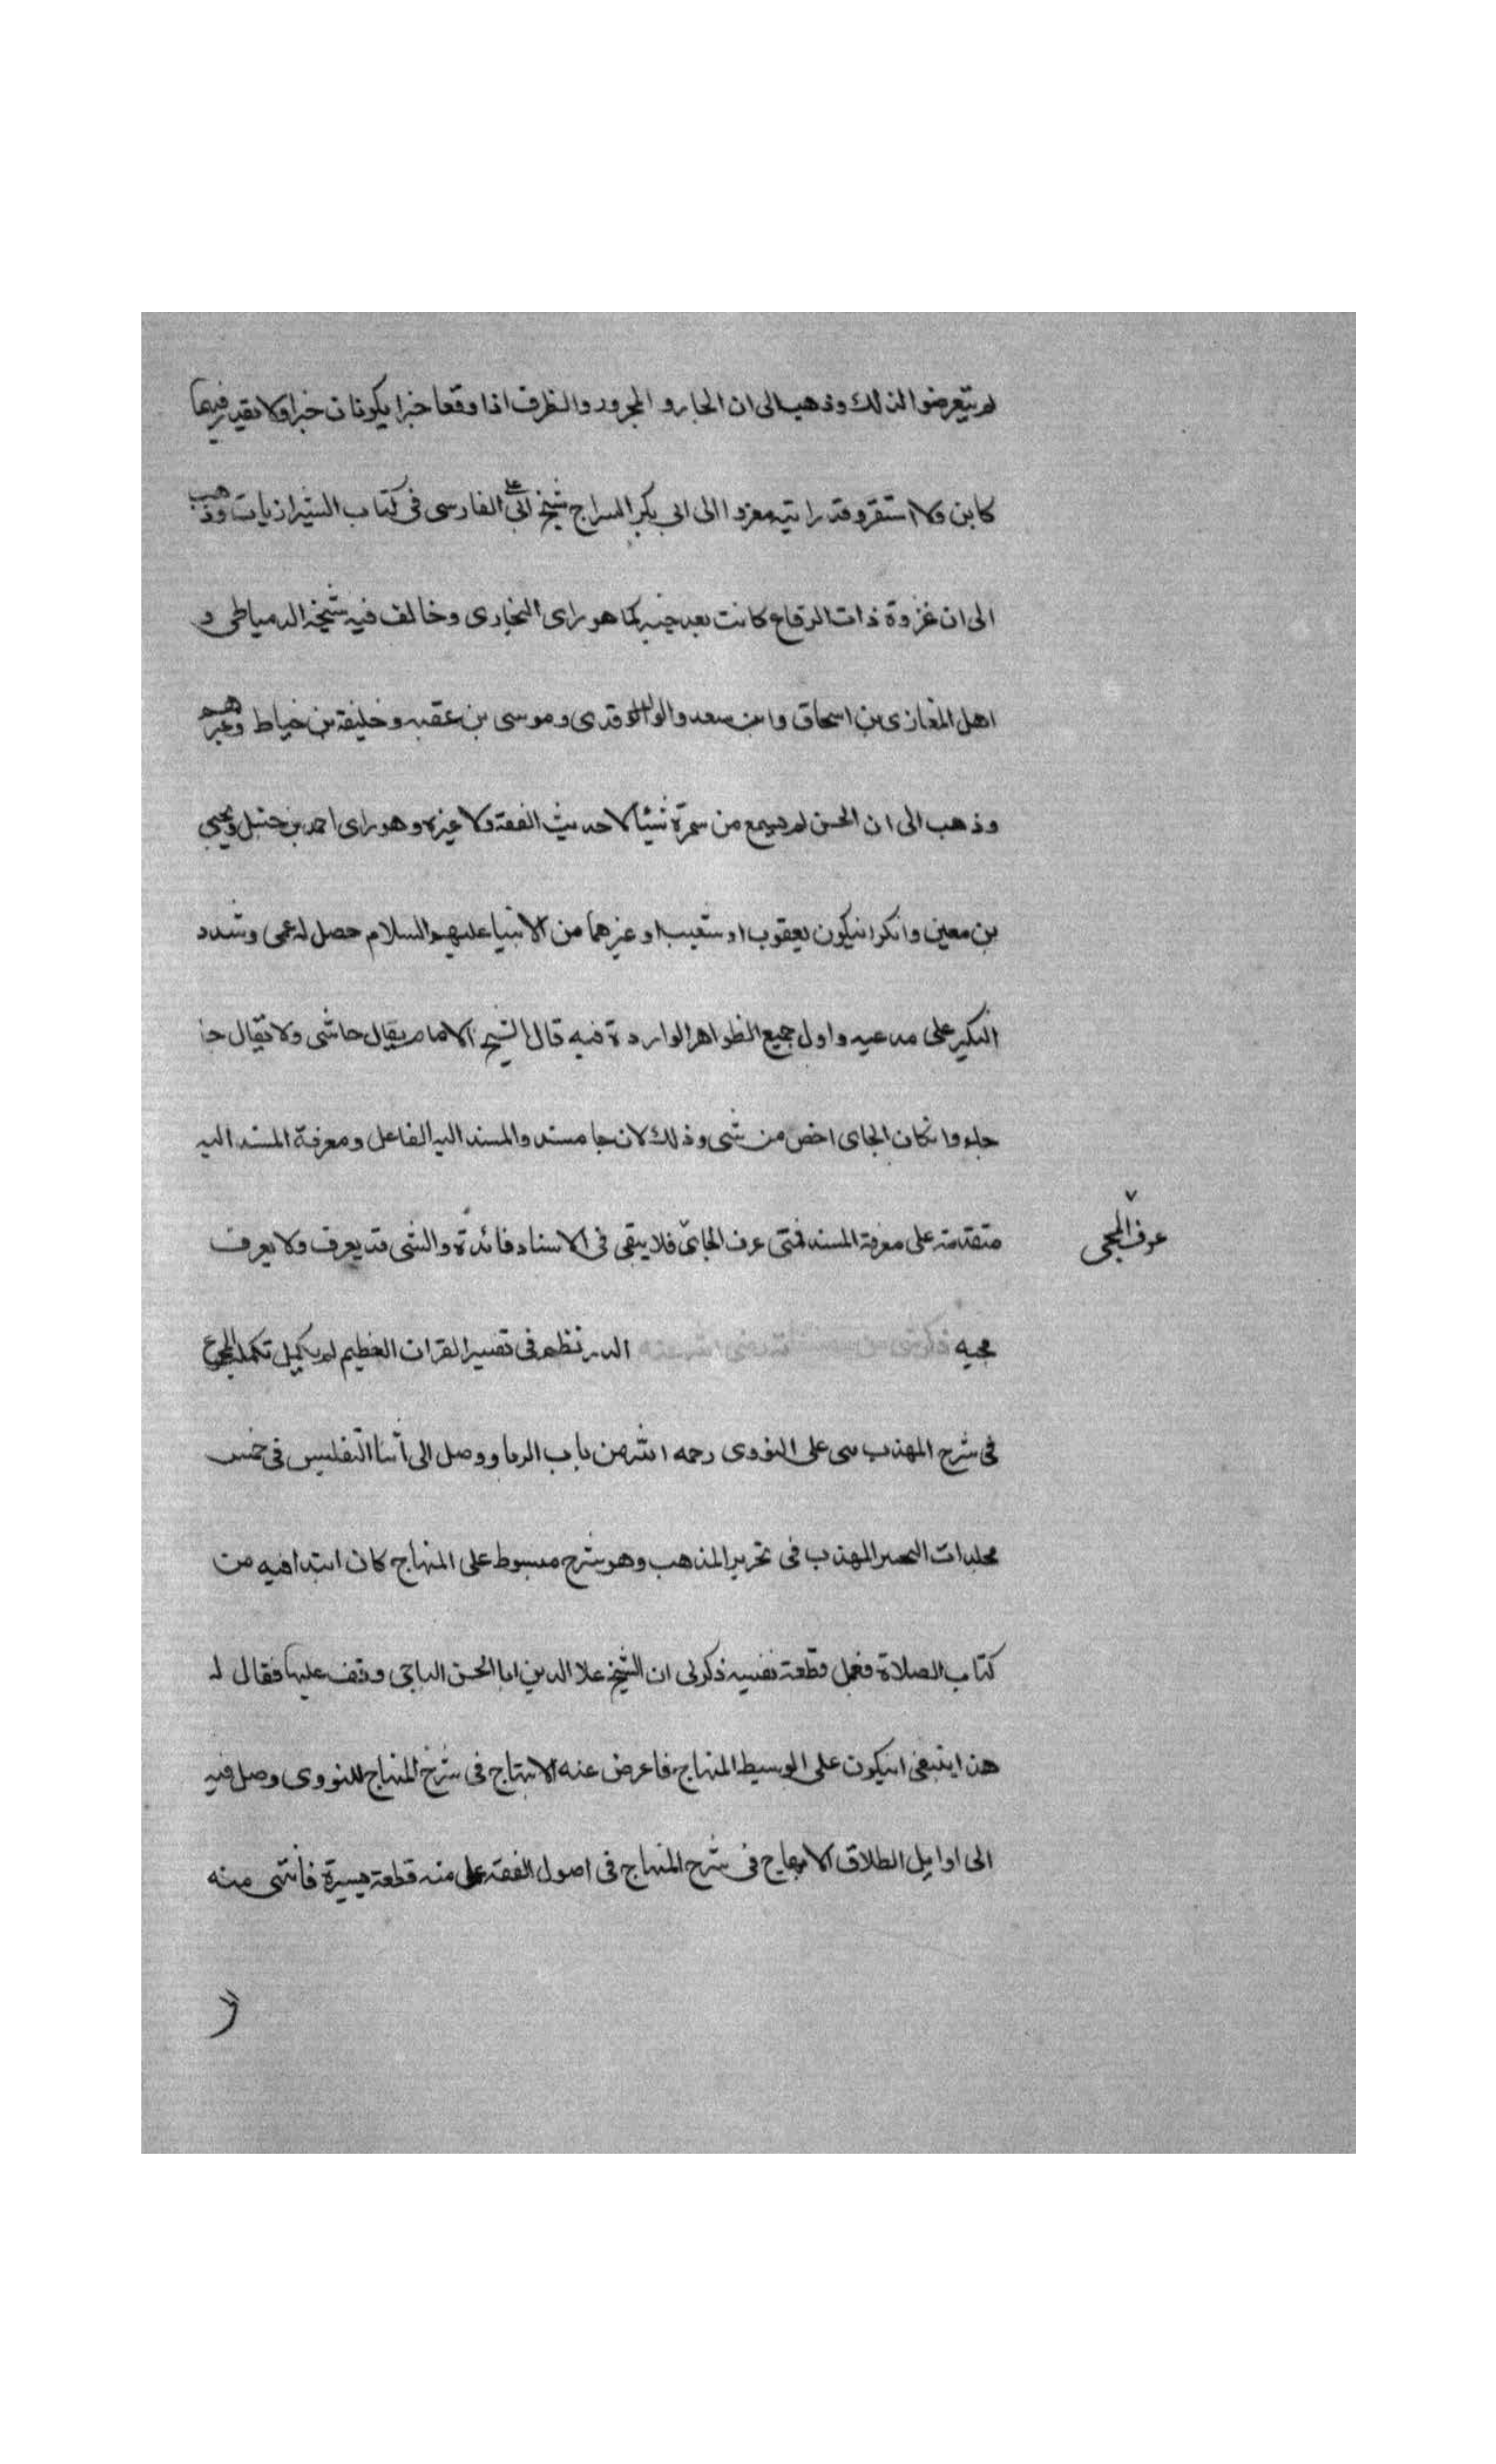 لم يتعرضوا لذلك وذهب الى ان الجار و المجرور والظرف اذا وقعا خبرا يكونان خبرا ولا يقدر فيهما
كاين ولا استقر وقد رايته معزوا الى ابى بكر السراج شيخ ابى على الفارسى فى كتاب الشيرازيات وذهب
الى ان غزوة ذات الرقاع كانت بعد خيبر كما هو راى البخارى وخالف فيه شيخه الدمياطى و
اهل المغازى بن اسحاق وابن سعد والواقدى وموسى بن عقبه وخليفة بن خياط وغيرهم
وذهب الى ان الحسن لم يسمع من سمرة شيئا لا حديث العقة ولا غيره وهو راى احمد بن حنبل ويحيى
بن معين وانكر انيكون يعقوب او شعيب او غيرهما من الانبيا عليهم السلام حصل له عمى وشدد
النكير على مدعيه واول جميع الظواهر الواردة فيه قال الشيخ الامام يقال جا شى ولا يقال جا
جاء وانكان الجاى اخص من شى وذلك لان جا مسند والمسند اليه الفاعل ومعرفة المسند اليه
متقدمة على معرفة المسند فمتى عرف الجائى فلا يبقى فى الاسناد فائدة والشى قد يعرف ولا يعرف
عرف المجى
مجيه الدر نظم فى تفسير القران العظيم لم يكمل تكملة المجموع
فى شرح المهذب بنى على النووى رحمه الله من باب الربا ووصل الى اثنا التفليس فى خمس
مجلدات التحبير المهذب فى تحرير المذهب وهو شرح مبسوط على المنهاج كان ابتدا فيه من
كتاب الصلاة فعمل قطعة نفيسه ذكر لى ان الشيخ علا الدين ابا الحسن الباجى وقف عليها فقال له
هذا ينبغى انيكون على الوسيط لا المنهاج فاعرض عنه الابتهاج فى شرح المنهاج للنووى وصل فيه
الى اوايل الطلاق الابهاج فى شرح المنهاج فى اصول الفقه عمل منه قطعة يسيرة فانتهى منه